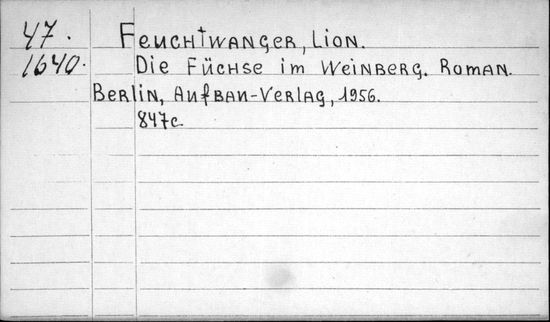 47. Feuchtwanger, Lion.
1640. Die Füchse im Weinberg. Roman.
Berlin, Aufbau-Verlag, 1956.
847c.